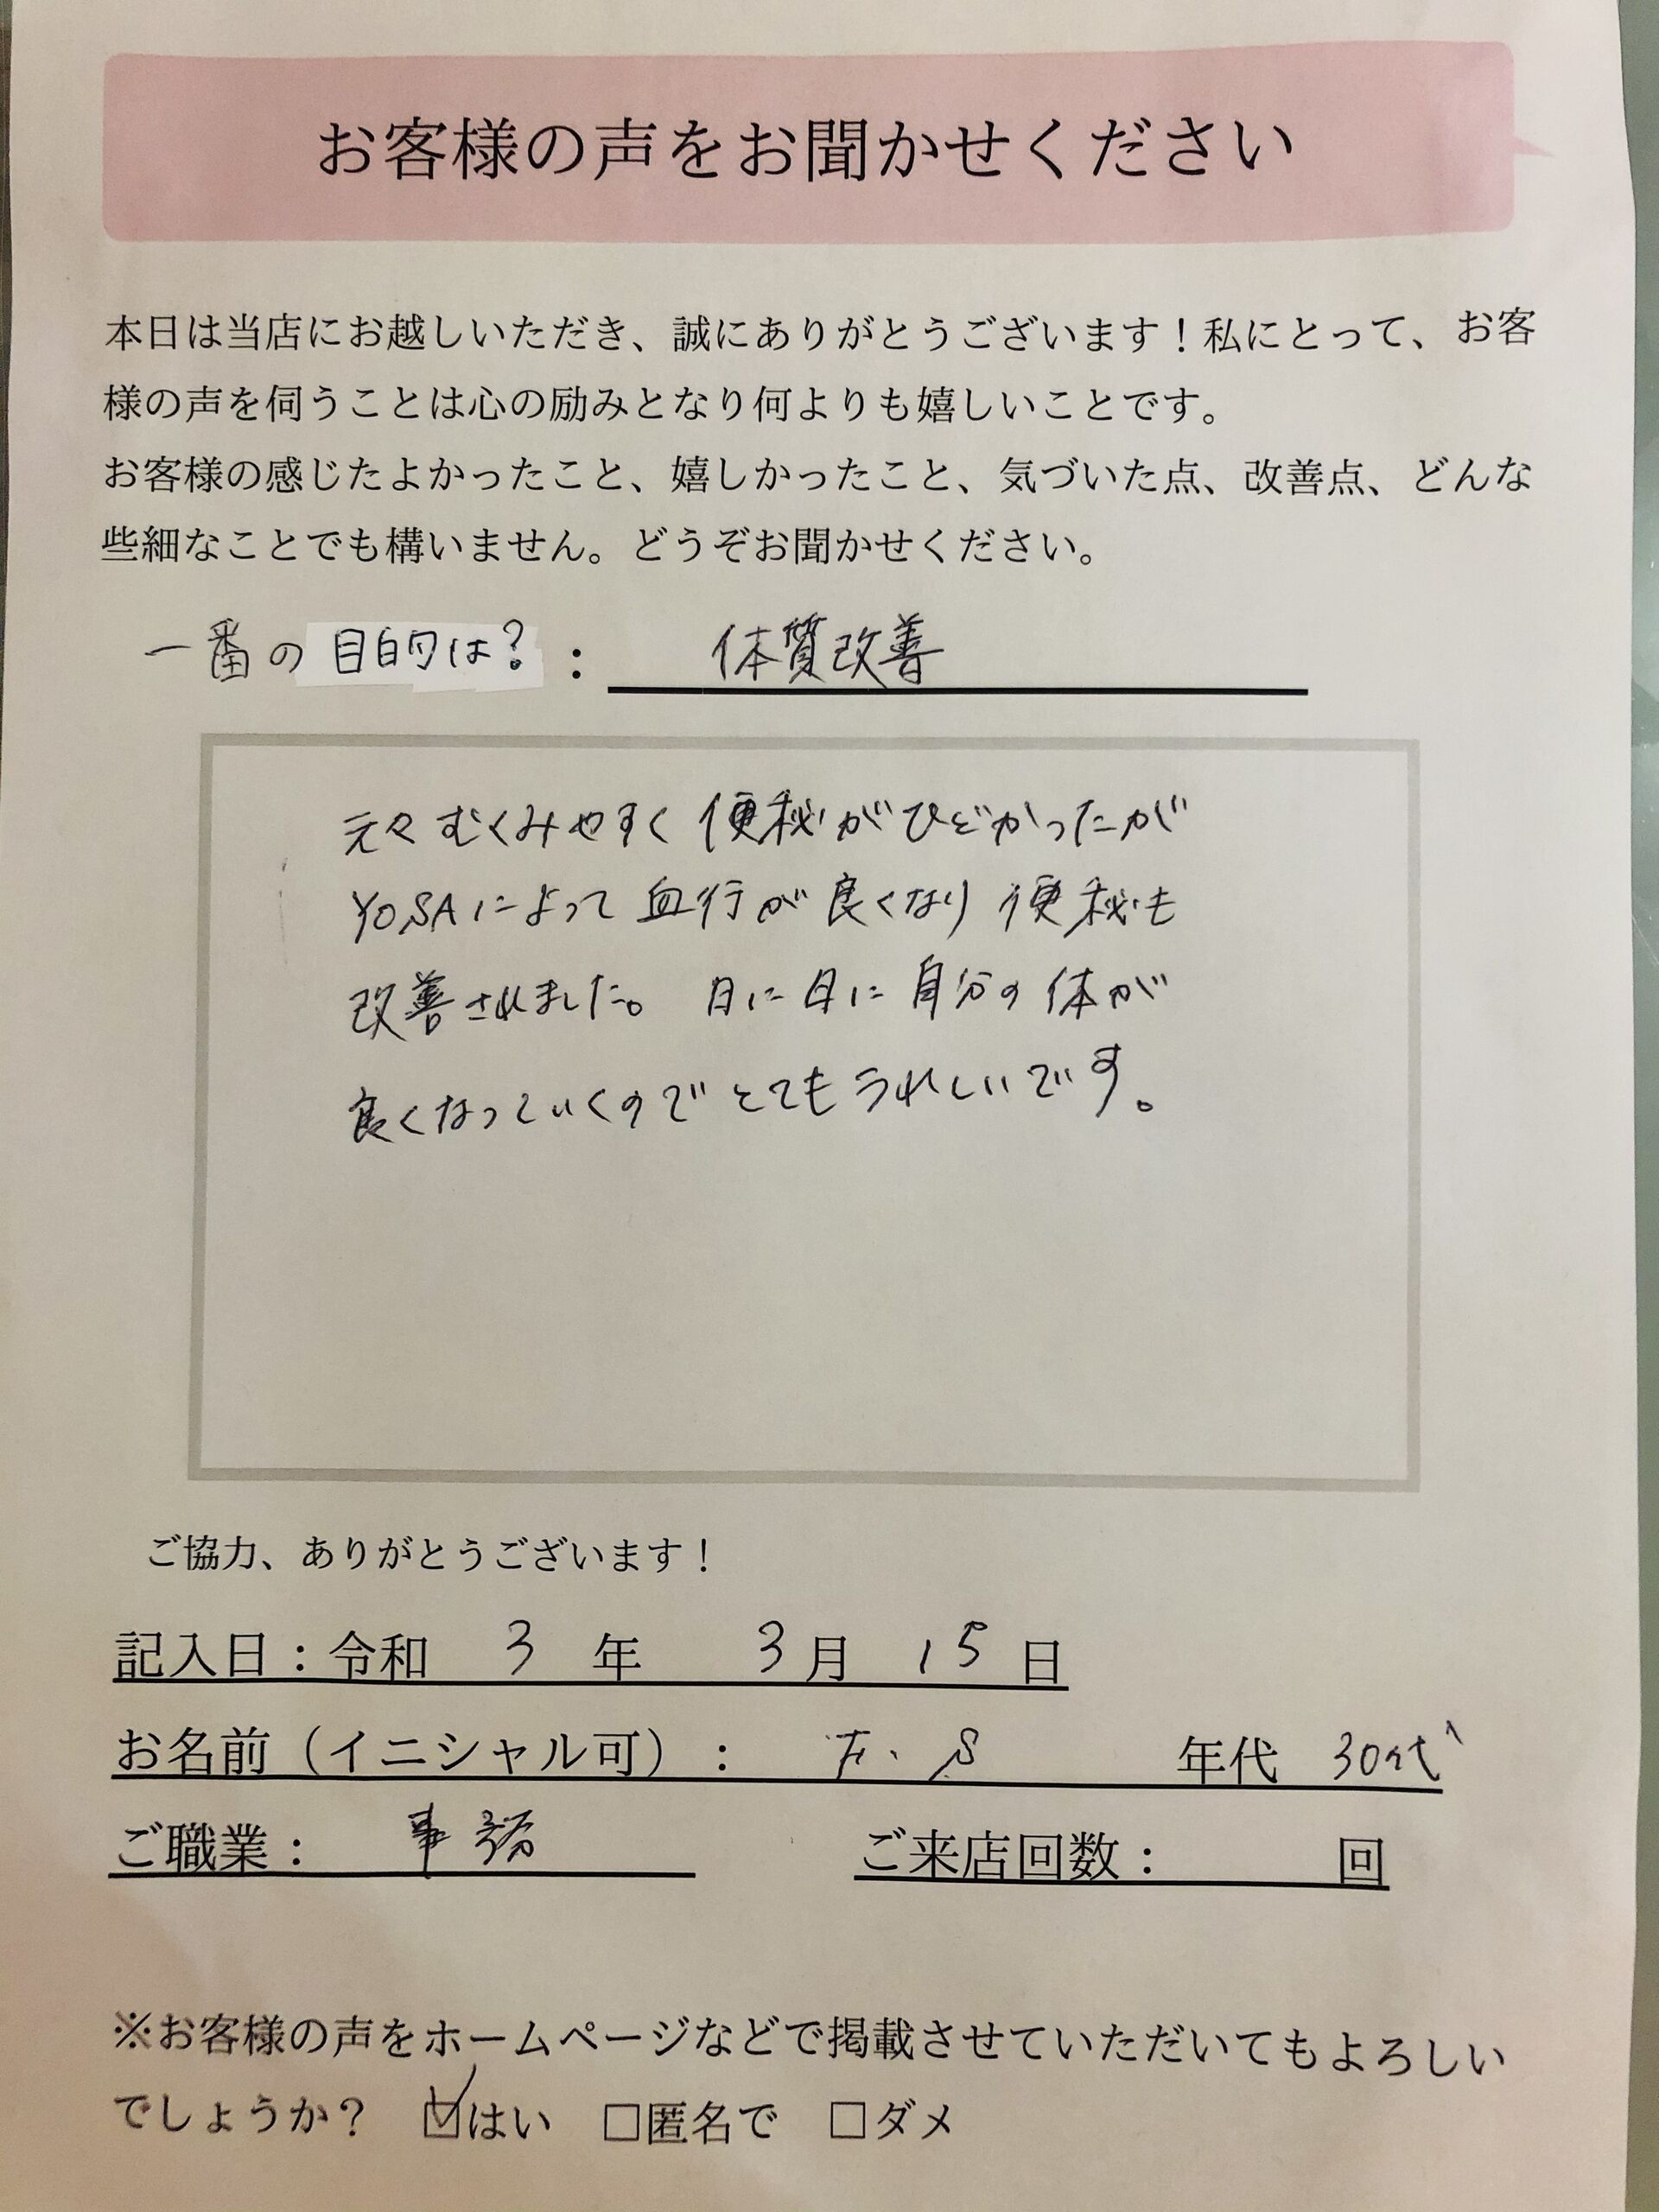 お客様の声をお聞かせください
本日は当店にお越しいただき、誠にありがとうございます！私にとって、お客
様の声を伺うことは心の励みとなり何よりも嬉しいことです。
お客様の感じたよかったこと、嬉しかったこと、気づいた点、改善点、どんな
些細なことでも構いません。どうぞお聞かせください。
一番の目的は？： 体質改善
元々むくみやすく便秘がひどかったが
YOSAによって血行が良くなり便秘も
改善されました。日に日に自分の体が
良くなっていくのでとてもうれしいです。
ご協力、ありがとうございます！
記入日：令和 3 年 3 月 15 日
お名前（イニシャル可）： S 年代 30代
ご職業： 事務 ご来店回数： 回
※お客様の声をホームページなどで掲載させていただいてもよろしい
でしょうか？ ☑はい □匿名で □ダメ